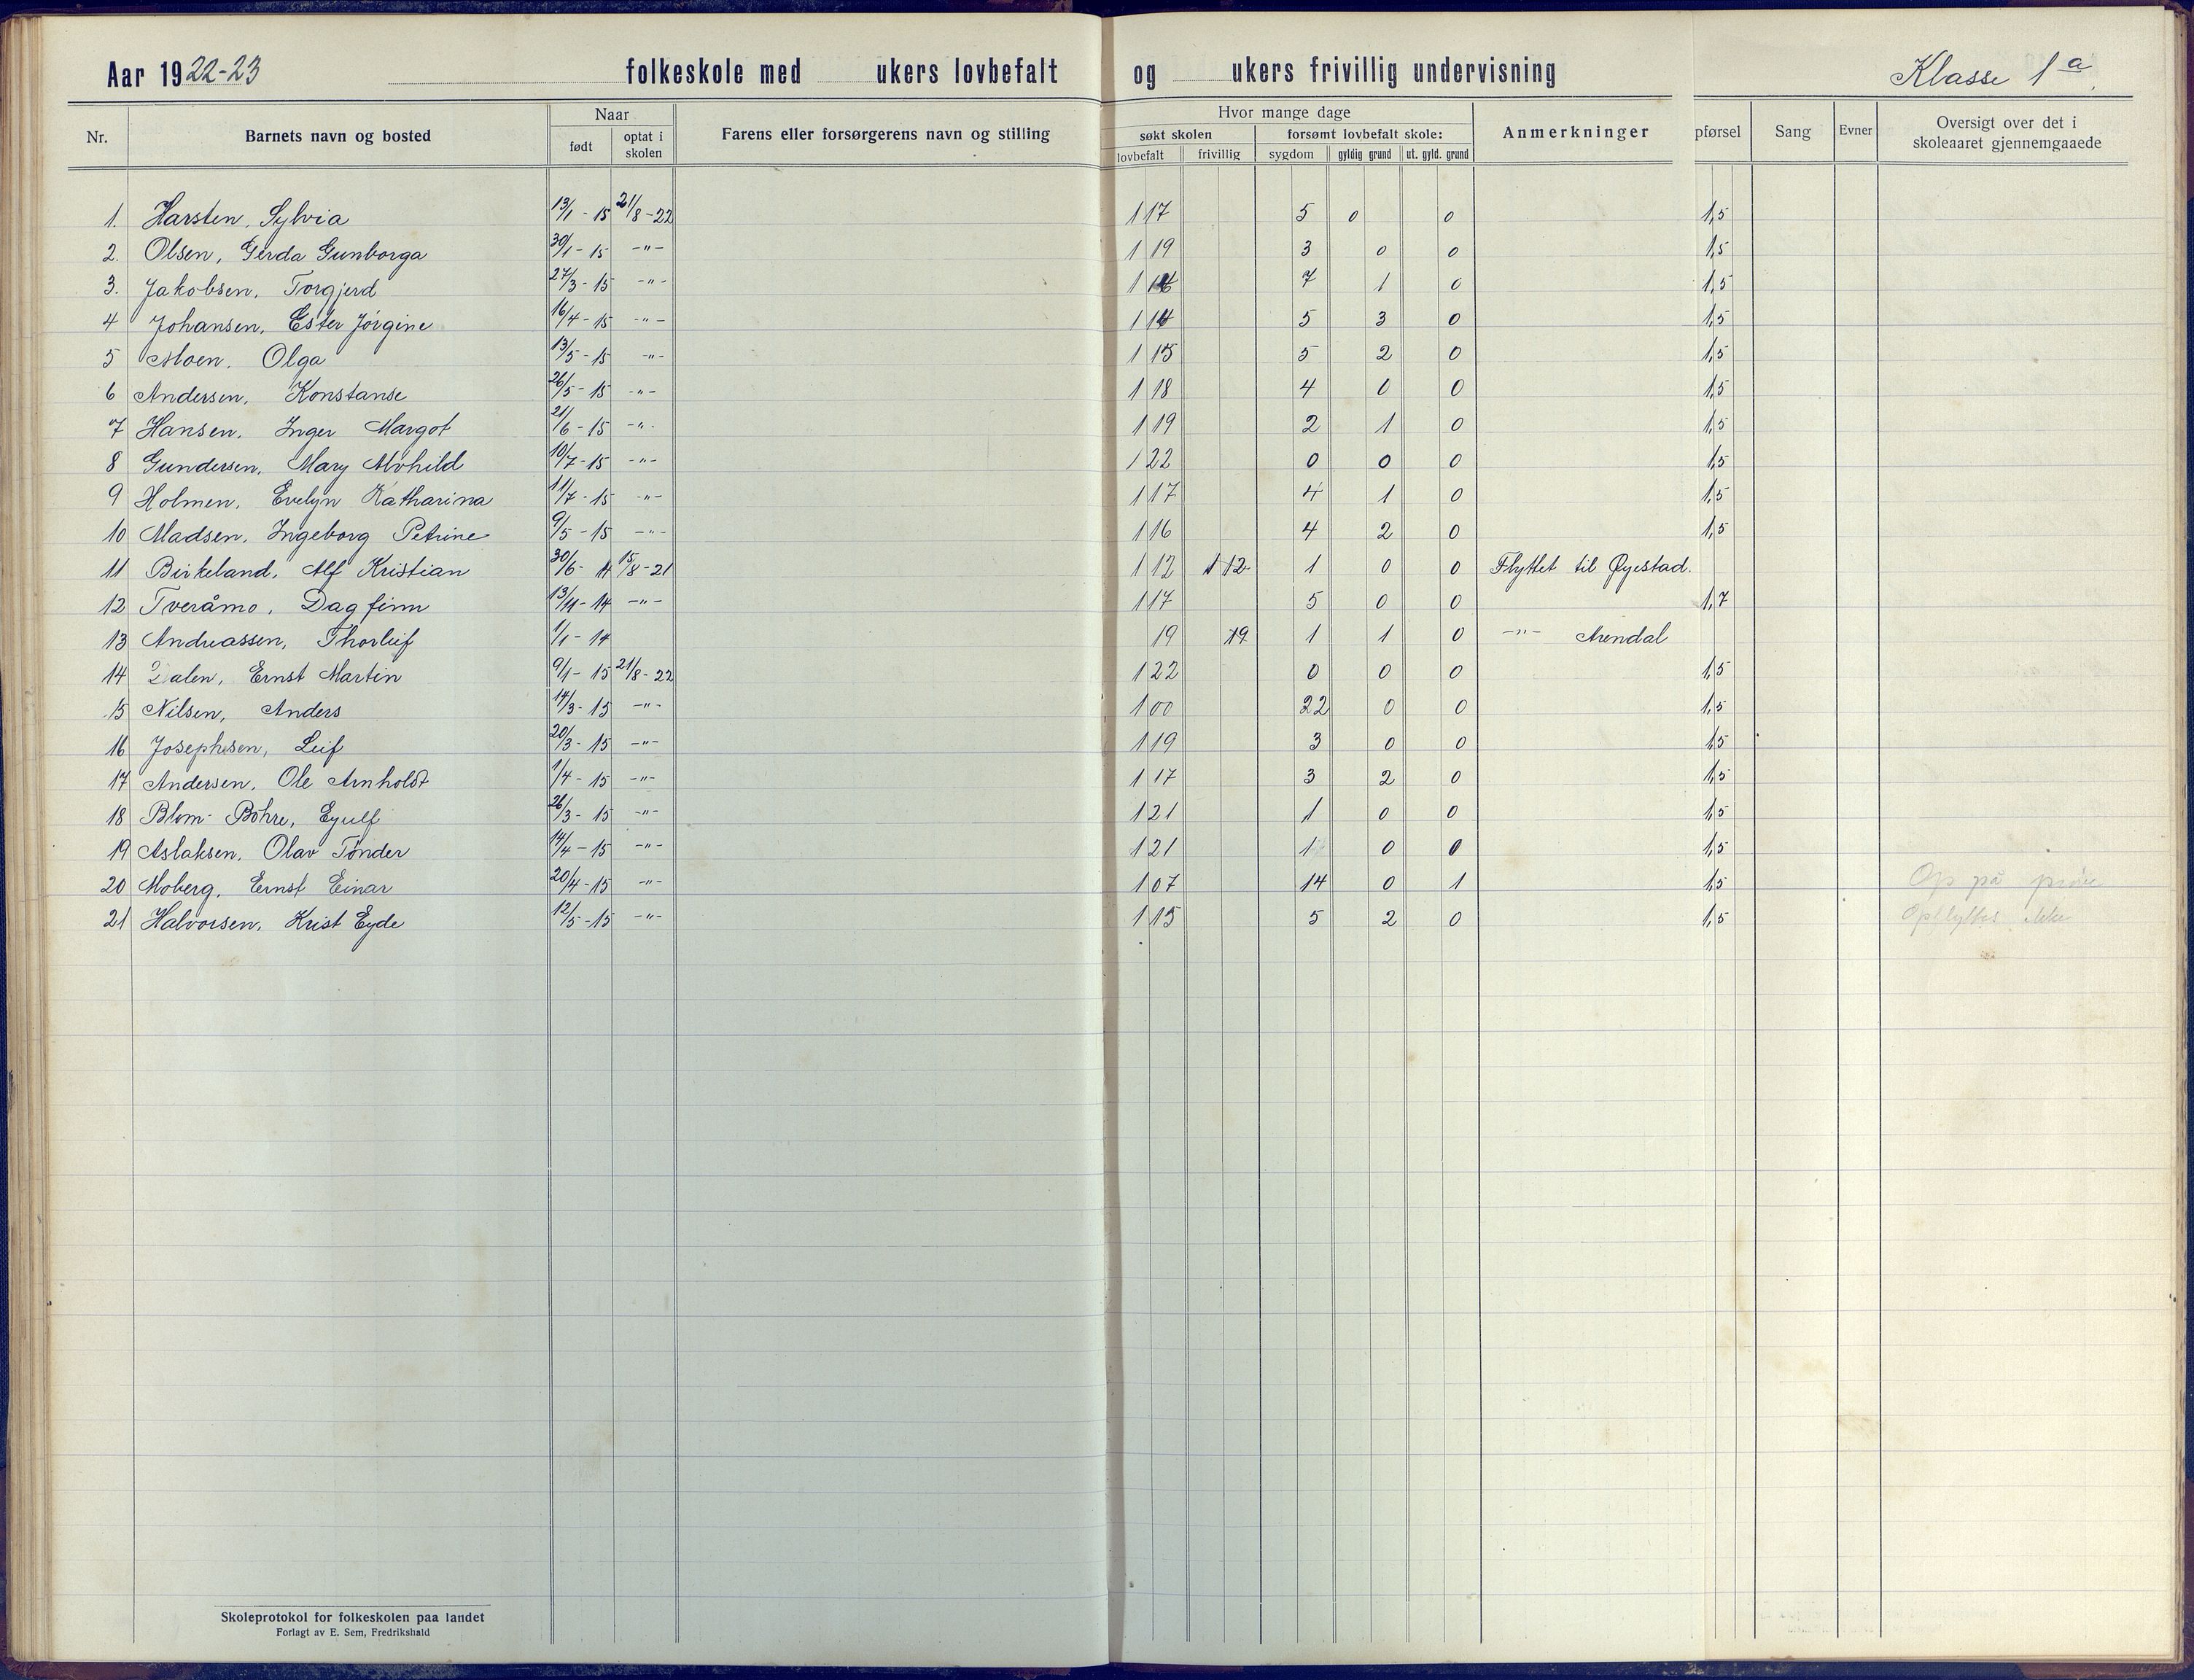 Aar 1922-23 folkeskole med ukers lovbefalt og ukers frivillig undervisning Klasse 1a.
Nr. Barnets navn og bosted Naar født optat i skolen Farens eller forsørgerens navn og stilling Hvor mange dage søkt skolen lovbefalt frivillig forsømt lovbefalt skole: sygdom gyldig grund ut. gyld. grund Anmerkninger pførsel Sang Evner Oversigt over det i skoleaaret gjennemgaaede
1. Harsten, Sylvia 13/1 - 15 21/8 - 22 117 5 0 0 1,5
2. Olsen, Gerda Gunborga 30/1 - 15 -"- 119 3 0 0 1,5
3. Jakobsen, Torgjerd 27/3 - 15 -"- 7 1 0 1,5
4 Johansen, Ester Jörgine 16/4 - 15 -"- 114 5 3 0 1,5
5 Moen, Olga 13/5 - 15 -"- 115 5 2 0 1,5
6 Andersen, Konstanse 26/5 - 15 -"- 118 4 0 0 1,5
7 Hansen, Inger Margot 21/6 - 15 -"- 119 2 1 0 1,5
8 Gundersen, Mary Alvhild 10/7 - 15 -"- 122 0 0 0 1,5
9 Holmen, Evelyn Katharina 11/7 - 15 -"- 117 4 1 0 1,5
10 Madsen, Ingeborg Petrine 9/5 - 15 -"- 116 4 2 0 1,5
11 Birkeland, Alf Kristian 30/6 - 14 15/8 - 21 112 112 1 0 0 Flyttet til Øyestad.
12 Tveråmo, Dagfinn 13/11 - 14 -"- 117 5 0 0 1,7
13 Andreassen, Thorleif 1/1 - 14 19 19 1 1 0 -"- Arendal
14 Dalen, Ernst Martin 9/1 - 15 21/8 - 22 122 0 0 0 1,5
15 Nilsen, Anders 14/3 - 15 -"- 100 22 0 0 1,5
16 Josephsen, Leif 20/3 - 15 -"- 119 3 0 0 1,5
17 Andersen, Ole Arnholdt 1/4 - 15 -"- 117 3 2 0 1,5
18 Blom-Bohre, Eyulf 26/3 - 15 -"- 121 1 0 0 1,5
19 Aslaksen, Olav Tönder 14/4 - 15 -"- 121 1 0 0 1,5
20 Moberg, Ernst Einar 20/4 - 15 -"- 107 14 0 1 1,5 Op på prøve
21 Halvorsen, Krist Eyde 12/5 - 15 -"- 115 5 2 0 1,5 Opflyttes ikke
Skoleprotokol for folkeskolen paa landet
Forlagt av E. Sem, Fredrikshald